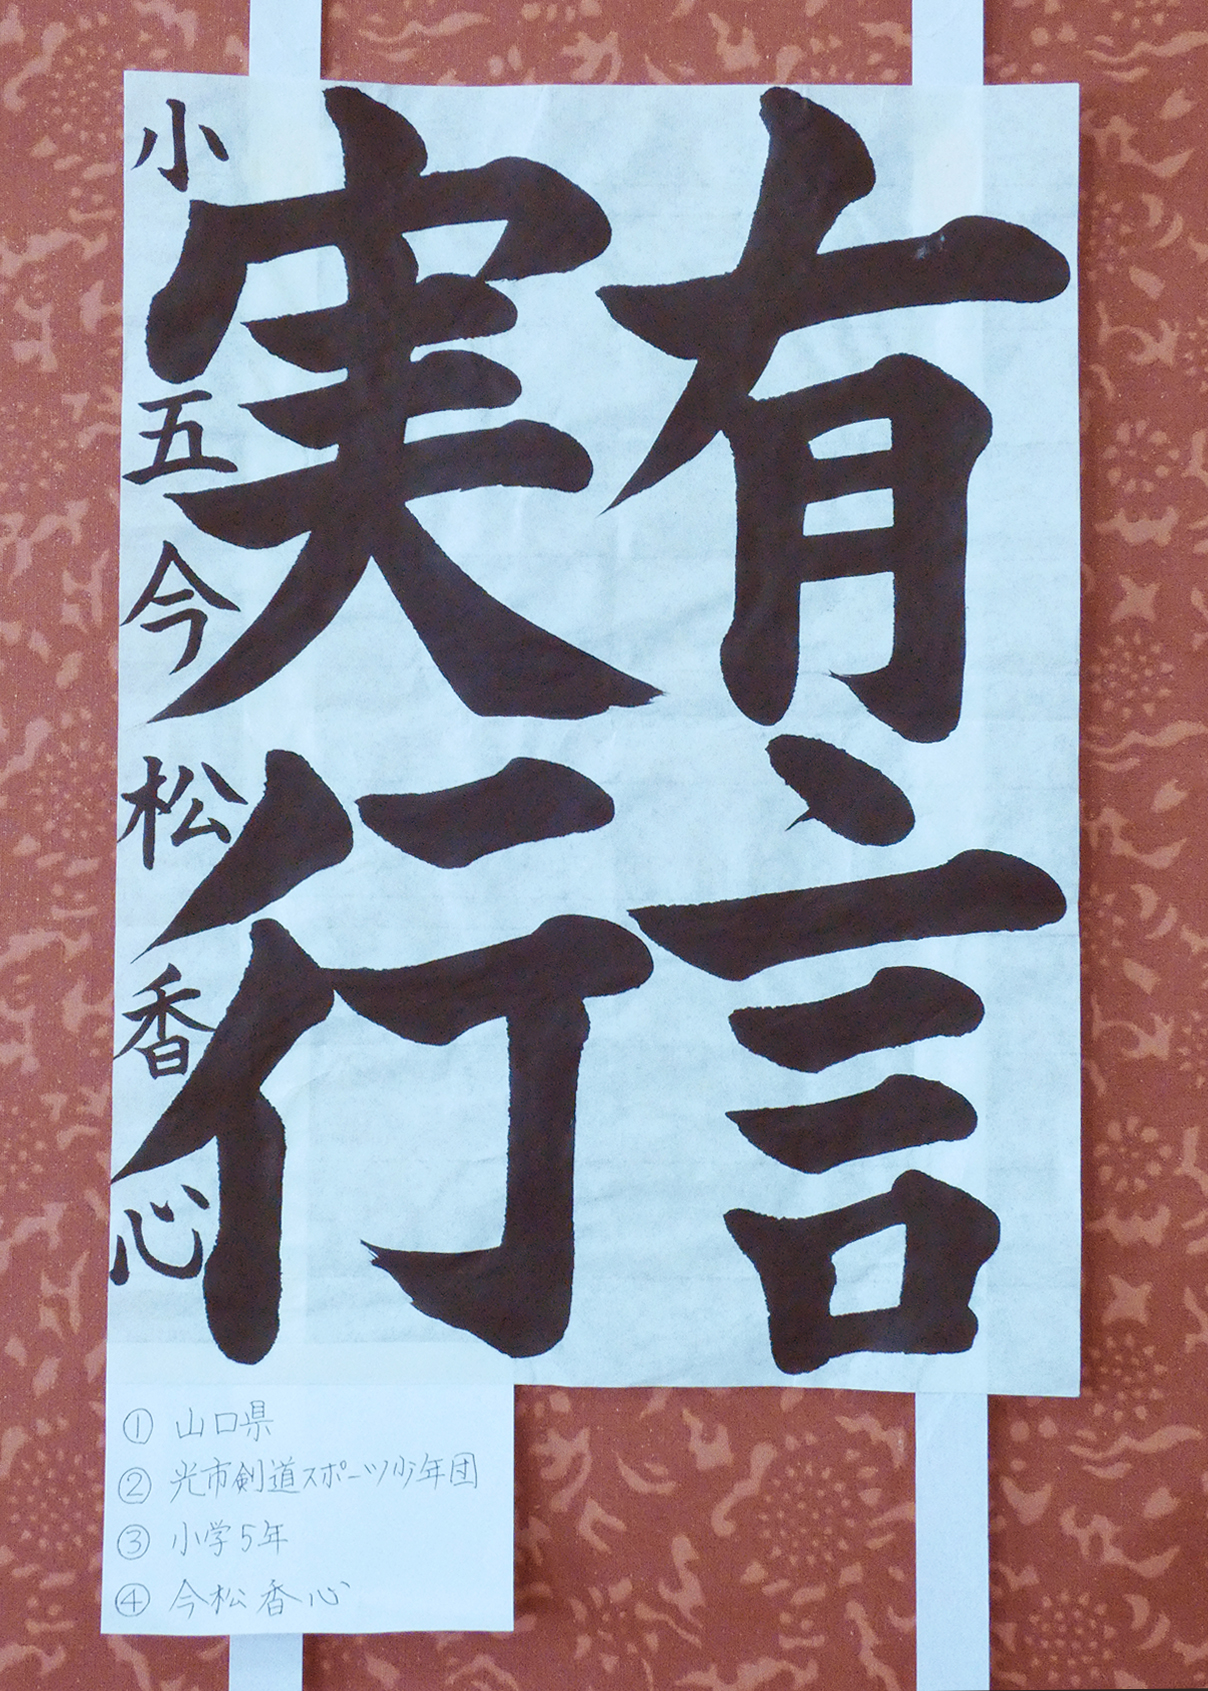 有言
実行
小五今松香心
① 山口県
② 光市剣道スポーツ少年団
③ 小学5年
④ 今松香心